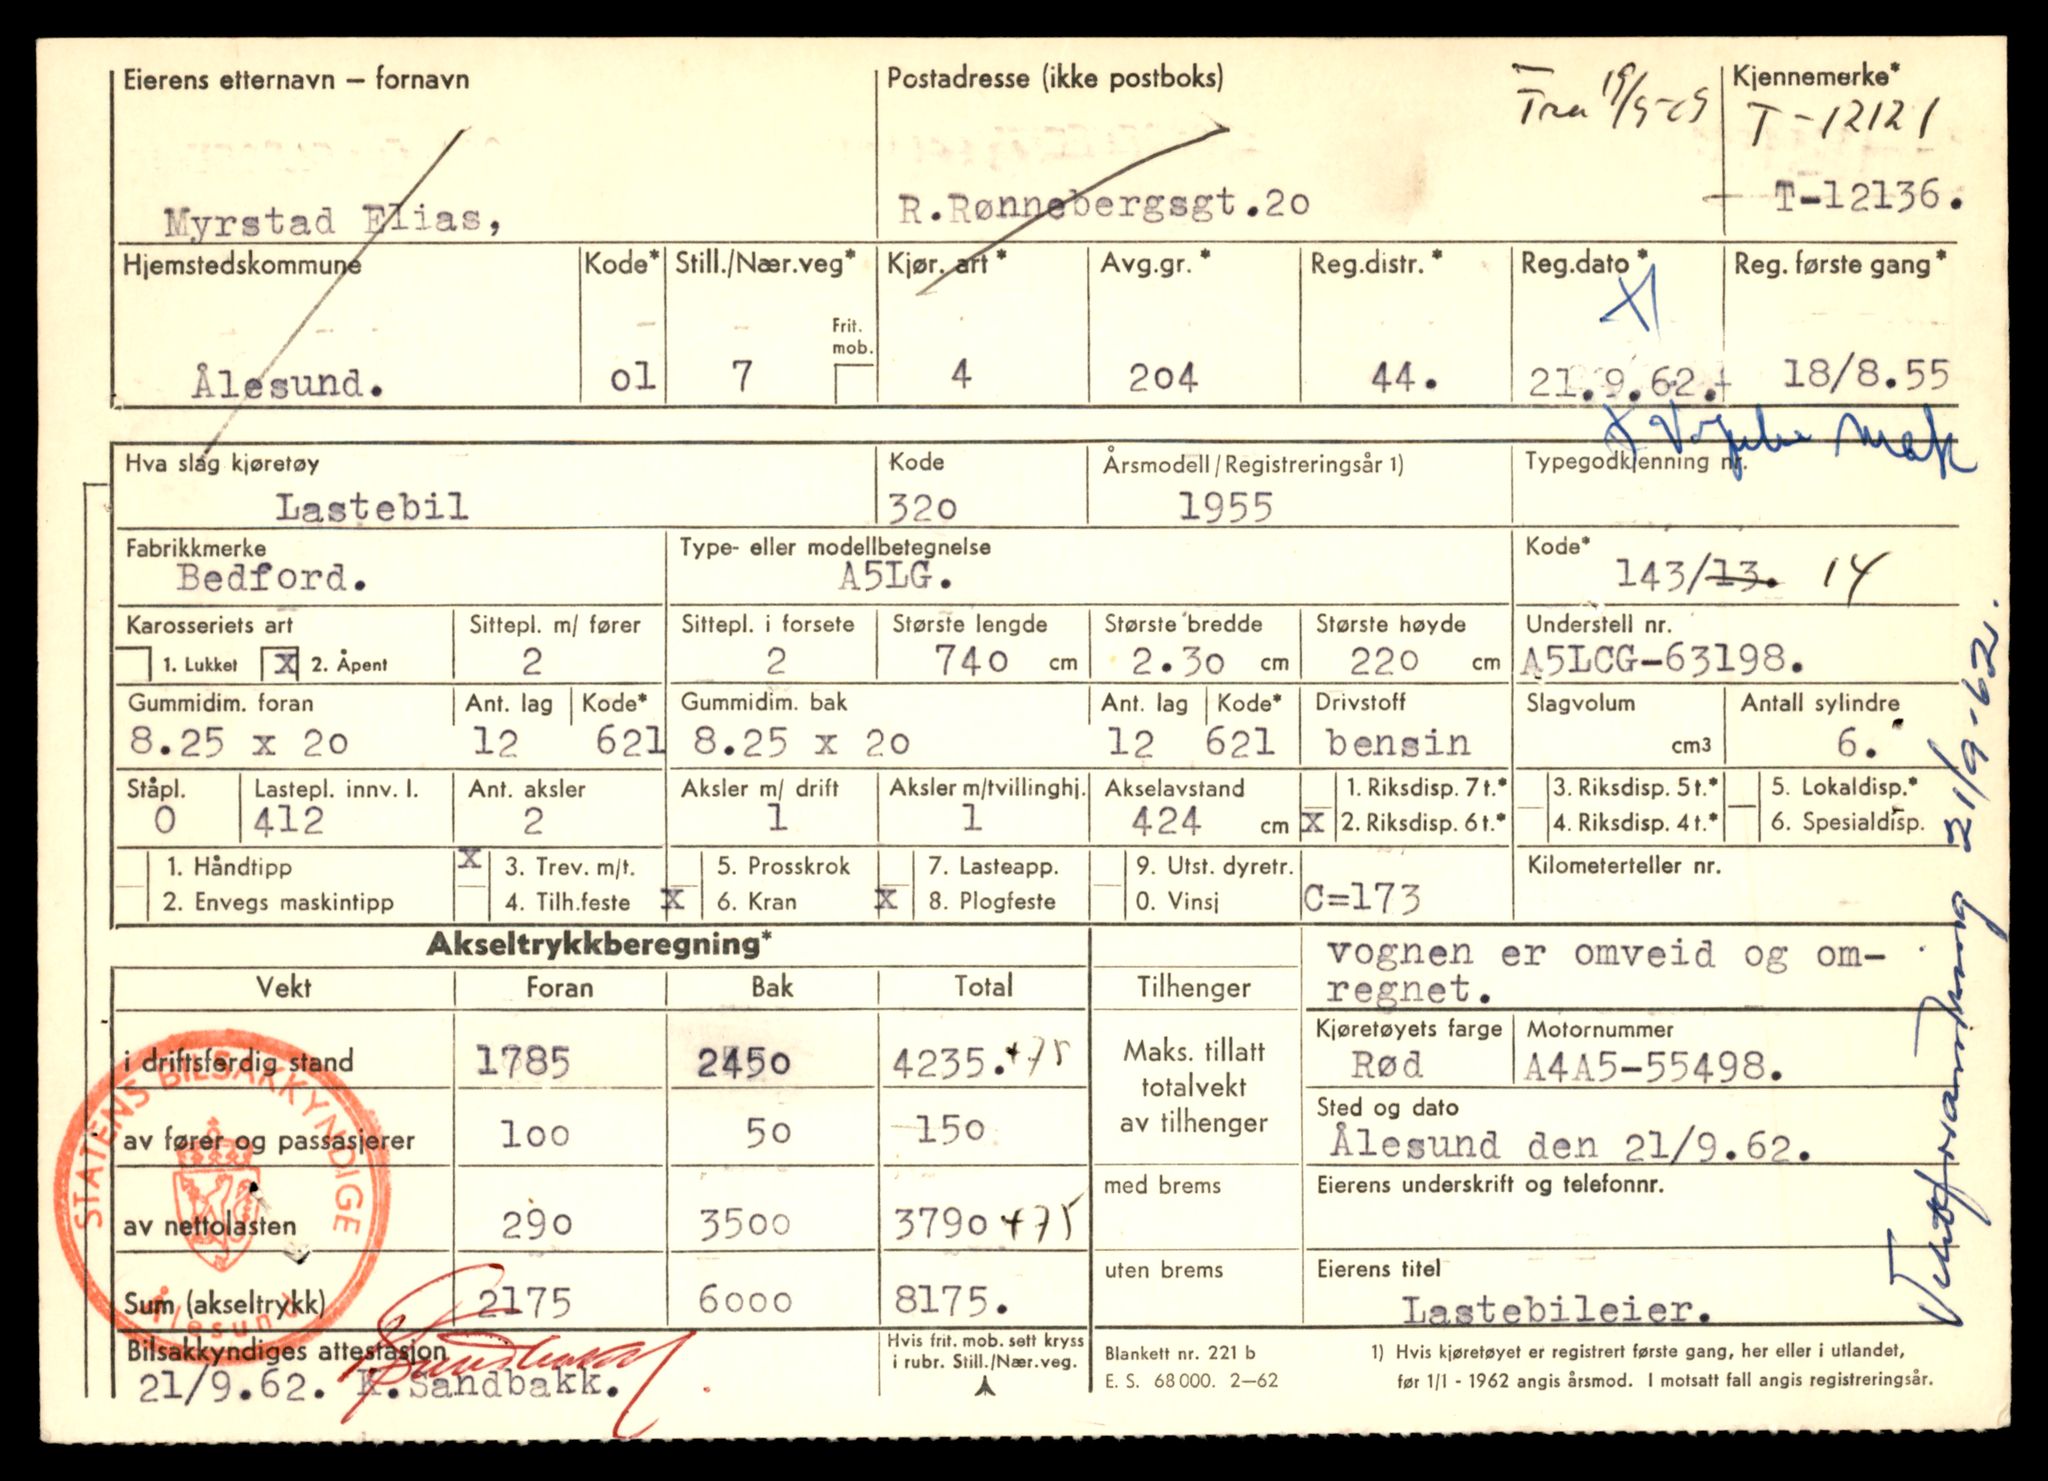 Eierens etternavn – fornavn Postadresse (ikke postboks) Fra 19/9-69 Kjennemerke*
T-12121
Myrstad Elias, R.Rønnebergsgt.20 T-12136.
Hjemstedskommune Kode* Still./Nær.veg* Kjør. art* Avg.gr.* Reg.distr.* Reg.dato* Reg. første gang*
Frit. mob.
Ålesund. 01 7 4 204 44. 21.9.62. 18/8.55
Hva slag kjøretøy Kode Årsmodell/Registreringsår 1) Typegodkjenning nr.
Lastebil 320 1955
Fabrikkmerke Type- eller modellbetegnelse Kode*
Bedford. A5LG. 143/13. 14
Karosseriets art Sittepl. m/ fører Sittepl. i forsete Største lengde Største bredde Største høyde Understell nr.
1. Lukket x 2. Åpent 2 2 740 cm 2.30 cm 220 cm A5LCG-63198.
Gummidim. foran Ant. lag Kode* Gummidim. bak Ant. lag Kode* Drivstoff Slagvolum Antall sylindre
8.25 x 20 12 621 8.25 x 20 12 621 bensin cm3 6.
Ståpl. Lastepl. innv. l. Ant. aksler Aksler m/ drift Aksler m/tvillinghj. Akselavstand 1. Riksdisp. 7 t.* 3. Riksdisp. 5 t.* 5. Lokaldisp.*
0 412 2 1 1 424 cm x 2. Riksdisp. 6 t.* 4. Riksdisp. 4 t.* 6. Spesialdisp.
1. Håndtipp x 3. Trev. m/t. 5. Prosskrok 7. Lasteapp. 9. Utst. dyretr. Kilometerteller nr.
2. Envegs maskintipp 4. Tilh.feste x 6. Kran x 8. Plogfeste 0. Vinsj C=173
Akseltrykkberegning* vognen er omveid og om-
Vekt Foran Bak Total Tilhenger regnet.
Kjøretøyets farge Motornummer
i driftsferdig stand 1785 2450 4235. +75 Maks. tillatt totalvekt av tilhenger Rød A4A5-55498.
Sted og dato
av fører og passasjerer 100 50 150 Ålesund den 21/9.62.
med brems Eierens underskrift og telefonnr.
av nettolasten 290 3500 3790 +75
uten brems Eierens titel
Sum (akseltrykk) 2175 6000 8175. Lastebileier.
Bilsakkyndiges attestasjon Hvis frit. mob. sett kryss i rubr. Still./Nær.veg. Blankett nr. 221 b 1) Hvis kjøretøyet er registrert første gang, her eller i utlandet,
21/9.62. K.Sandbakk. E. S. 68 000. 2–62 før 1/1 - 1962 angis årsmod. I motsatt fall angis registreringsår.
STATENS BILSAKKYNDIGE
Ålesund
21/9-62.